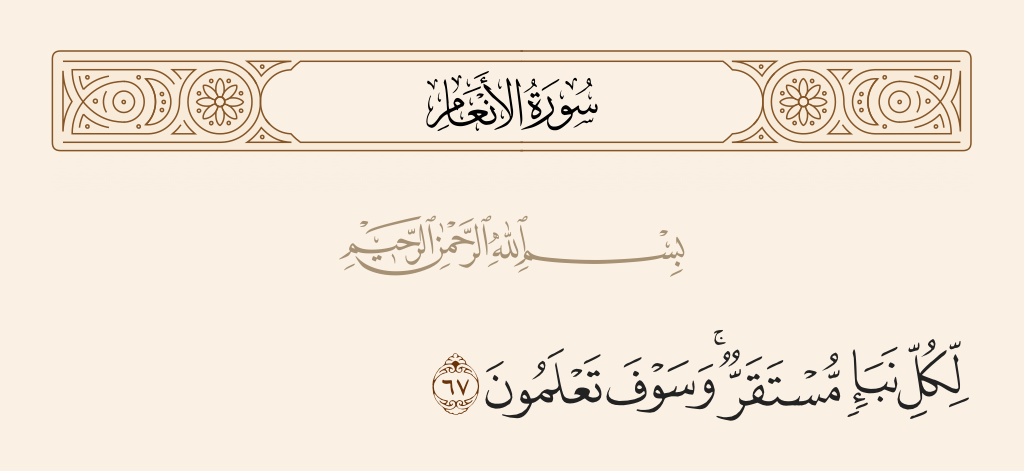 سُورَةُ الأَنْعَامِ
بِسْمِ ٱللَّهِ ٱلرَّحْمَٰنِ ٱلرَّحِيمِ
لِّكُلِّ نَبَإٍ مُّسْتَقَرٌّ ۚ وَسَوْفَ تَعْلَمُونَ ٦٧